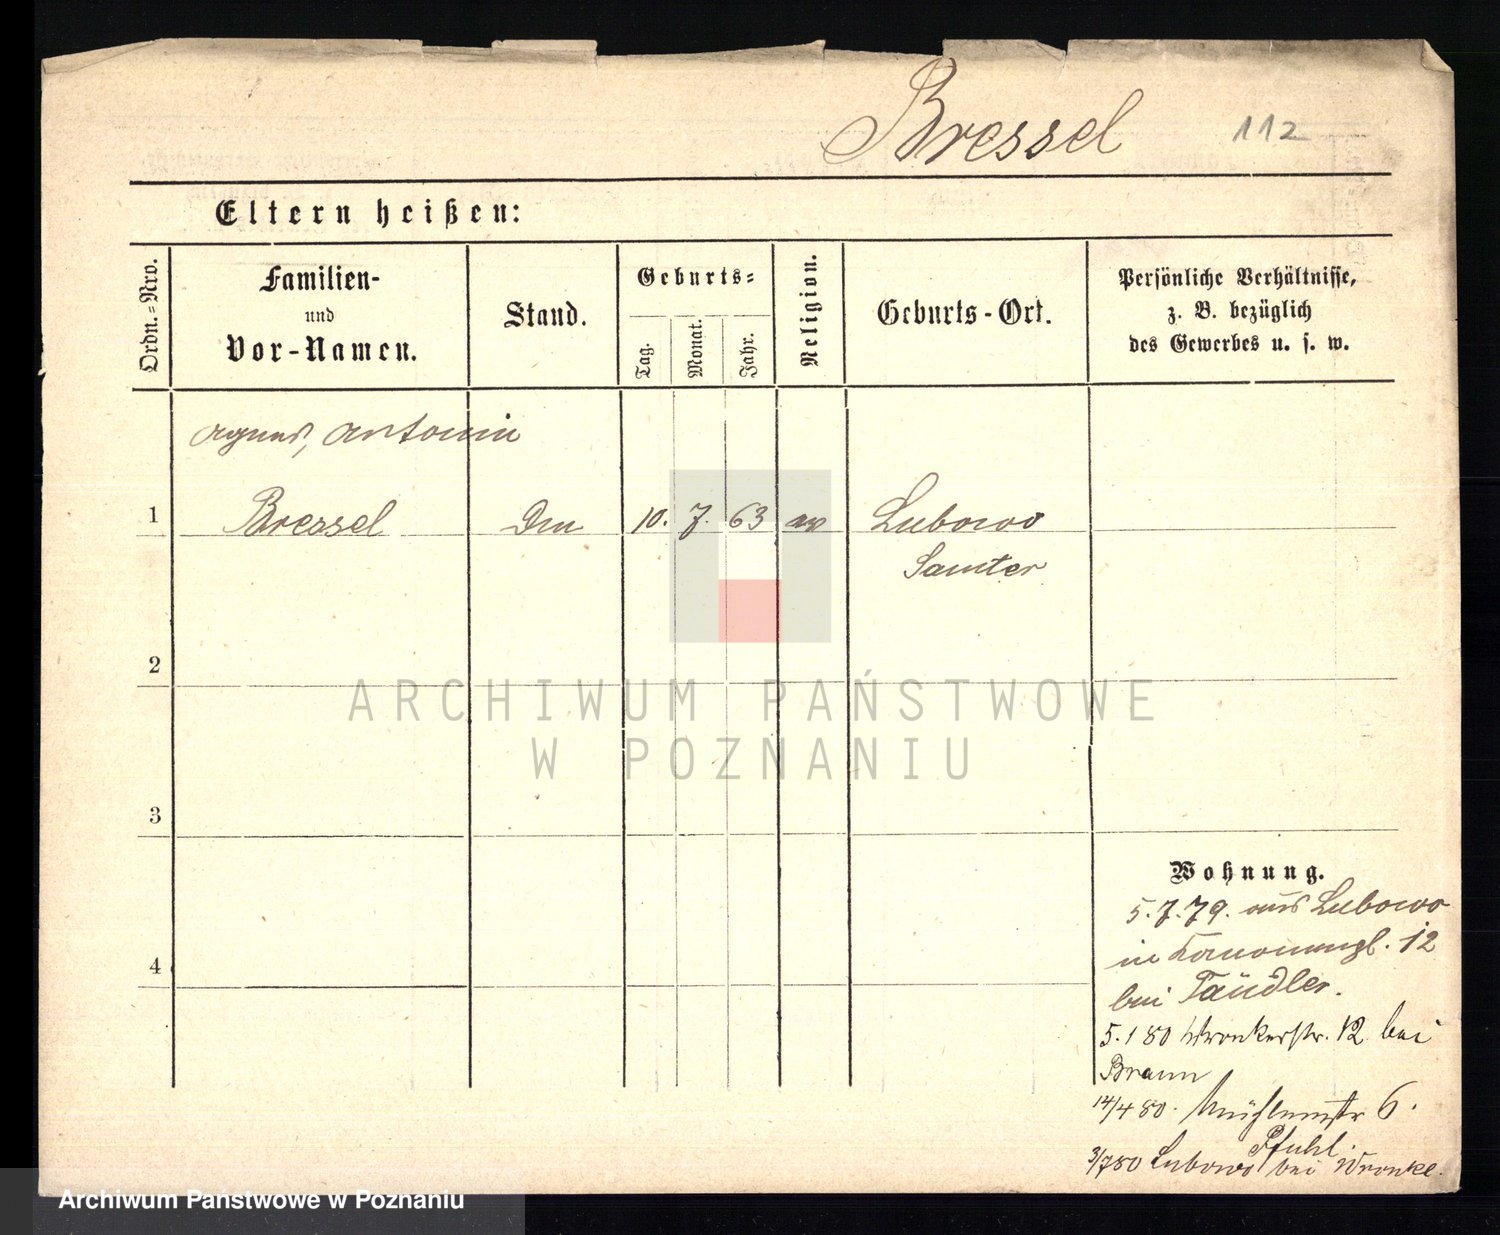 Bressel 112
Eltern heißen:
Ordn.-Nro.
Familien-
und
Vor-Namen.
Stand.
Geburts-
Tag.
Monat.
Jahr.
Religion.
Geburts-Ort.
Persönliche Verhältnisse,
z. B. bezüglich
des Gewerbes u. s. w.
Agnes, Antonie
1 Bressel 10. 7. 63 Lubowo
Samter
2
ARCHIWUM PAŃSTWOWE
W POZNANIU
3
Wohnung.
5.7.79. aus Lubowo
4 in 12
bei Täudler.
5.1 80 Wronkerstr. 12 bei
Braun
14/4 80. Mühlenstr 6.
Pfuhl.
3/780 Lubowo bei Wronke.
Archiwum Państwowe w Poznaniu